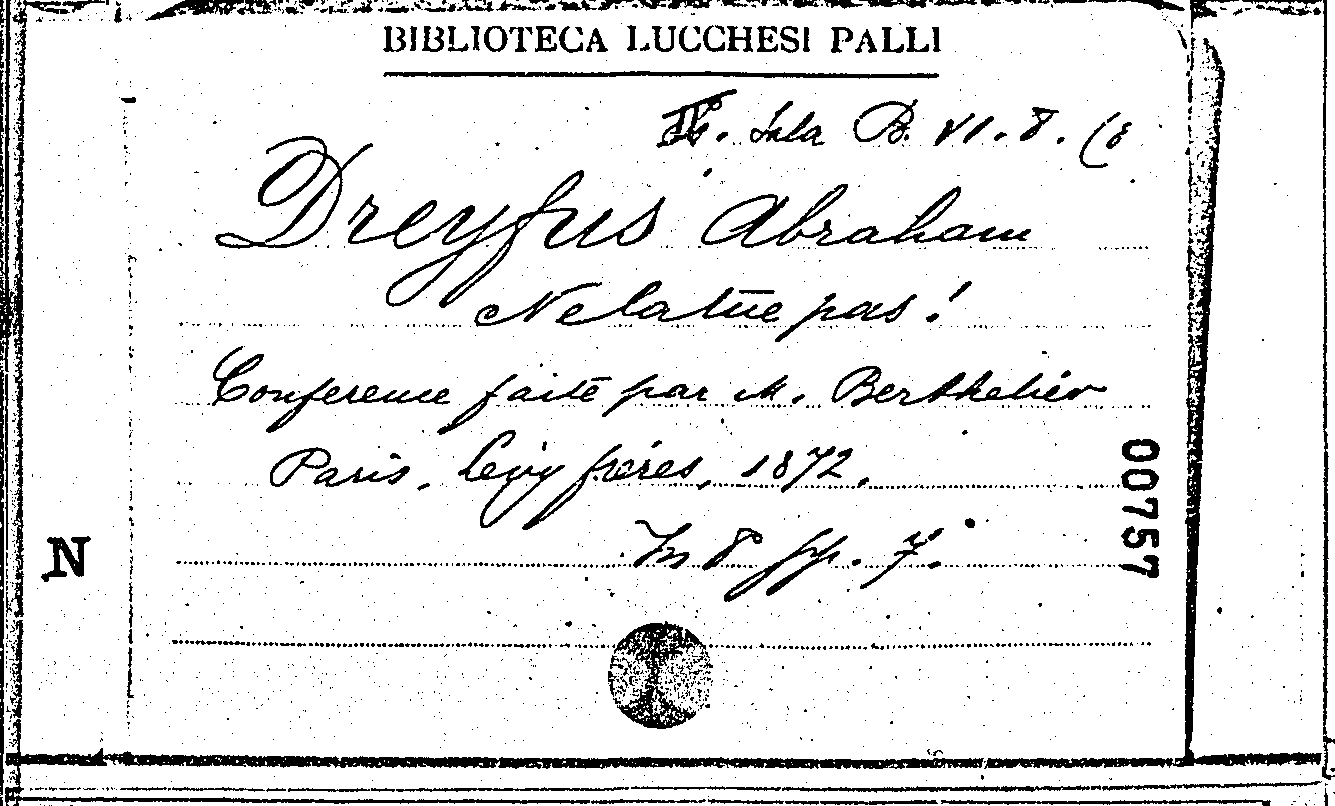 BIBLIOTECA LUCCHESI PALLI
Sala B. VI. 8. (8
Dreyfus Abraham
Ne la tue pas!
Conference faite par M. Berthelier
Paris, Levy frères, 1872.
In 8 pp. 7.
00757
N